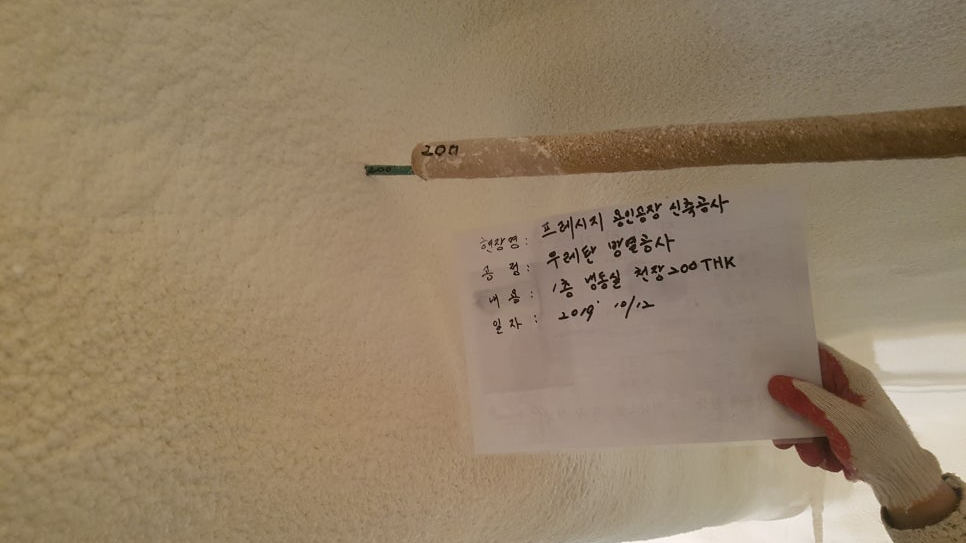 200
200
현장명 : 프레시지 용인공장 신축공사
공 정 : 우레탄 방열공사
내 용 : 1층 냉동실 천장 200 THK
일 자 : 2019' 10/12